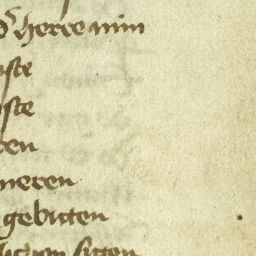 herre min
ste
ste
ren
neren
gebuten
lichen siten